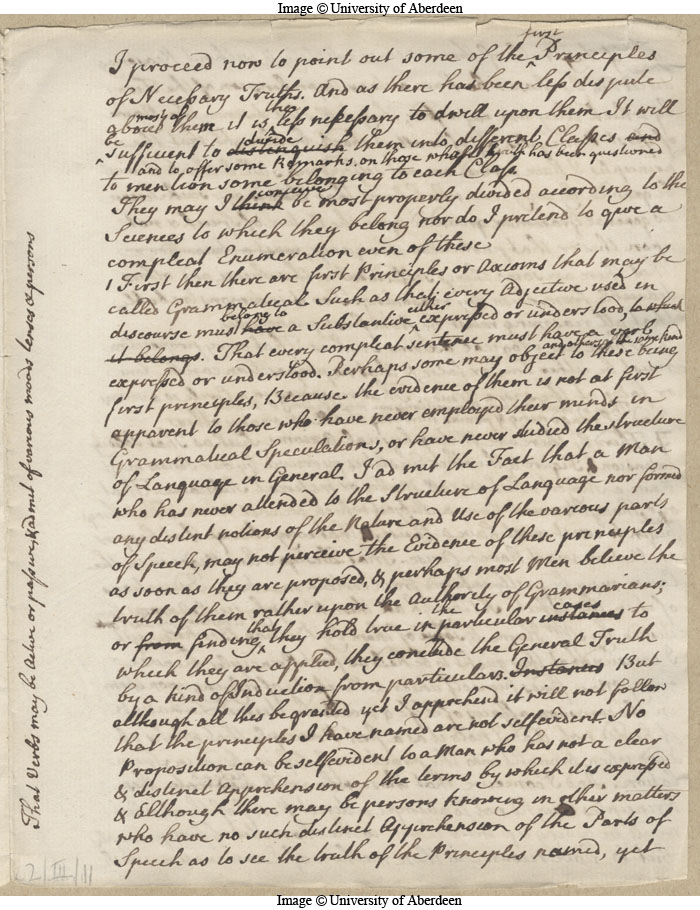 Image © University of Aberdeen
first
I proceed now to point out some of the Principles
of Necessary Truths. And as there has been less dispute
most of tho
about them it is less necessary to dwell upon them It will
be divide
sufficient to distinguish them into different Classes and
and to offer some Remarks on those whose truth has been questioned
to mention some belonging to each Class
conceive
They may I think be most properly divided according to the
Sciences to which they belong nor do I pretend to give a
compleat Enumeration even of these
1 First then there are first Principles or Axioms that may be
called Grammatical Such as that every Adjective used in
belong to either
discourse must have a Substantive expressed or understood, to which
it belongs. That every compleat sentence must have a verb
and others of the same kind
expressed or understood. Perhaps some may object to these being
first principles, Because the evidence of them is not at first
apparent to those who have never employed their minds in
Grammatical Speculations, or have never studied the structure
of Language in General. I admit the Fact that a Man
who has never attended to the Structure of Language nor formed
any distinct notions of the Nature and Use of the various parts
of Speech, may not perceive the Evidence of these principles
as soon as they are proposed, & perhaps most Men believe the
truth of them rather upon the Authority of Grammarians;
that the cases
or from finding they hold true in particular instances to
which they are applied, they conclude the General Truth
by a kind of Induction from particulars. Instances But
although all this be granted yet I apprehend it will not follow
that the principles I have named are not selfevident. No
Proposition can be selfevident to a Man who has not a clear
& distinct Apprehension of the terms by which it is expressed
& Although there may be persons knowing in other matters
who have no such distinct Apprehension of the Parts of
Speech as to see the truth of the Principles named, yet
That Verbs may be active or passive, & admit of various moods tenses & persons
2/III/11
Image © University of Aberdeen